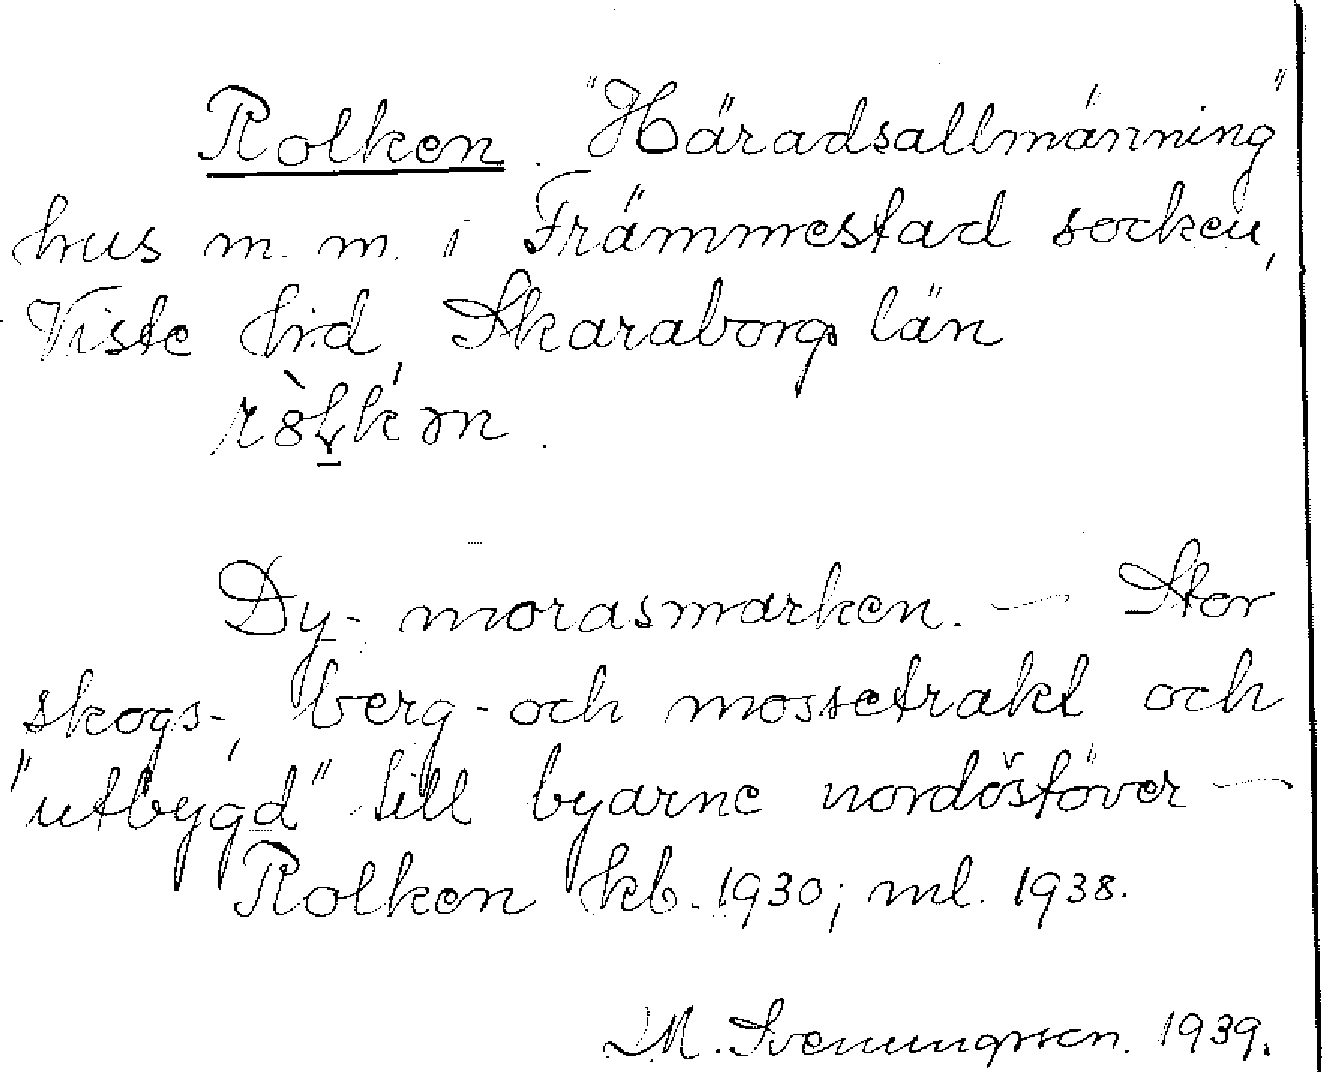 Rolken. "Häradsallmänning"
hus m. m. i Främmestad socken,
Viste hrd, Skaraborgs län

Dy-, morasmarken. — Stor
skogs-, berg- och mossetrakt och
"utbygd" till byarne nordöstöver —
Rolken kb. 1930; ml. 1938.
M. Svenungsson. 1939.